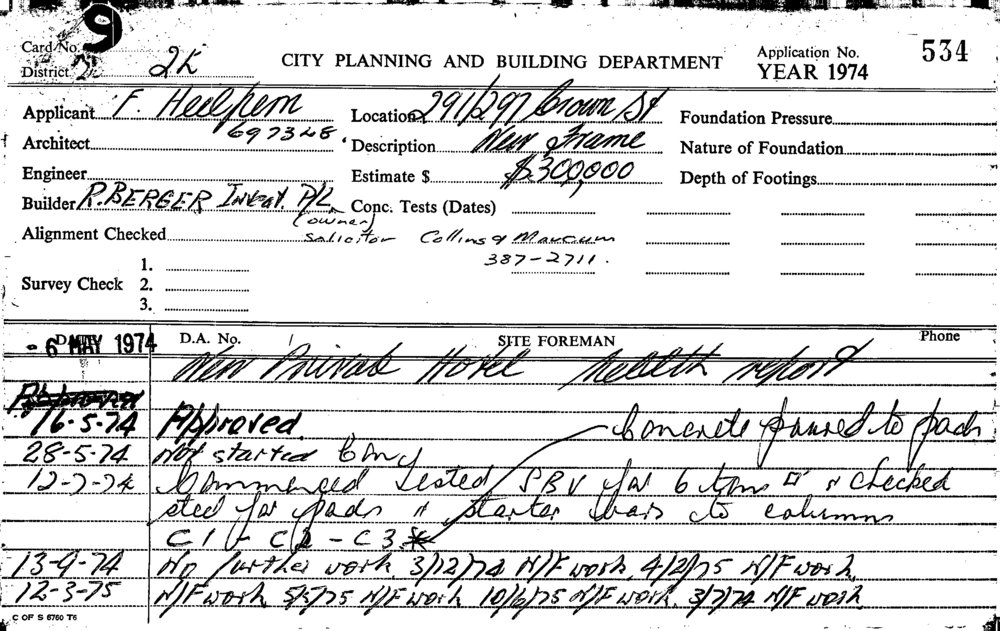 9
Card No.
District 2. 2K CITY PLANNING AND BUILDING DEPARTMENT Application No. 534
YEAR 1974
Applicant F. Heilpern Location 291/297 Crown St Foundation Pressure
697348
Architect Description New Frame Nature of Foundation
Engineer Estimate $ $300,000 Depth of Footings
Builder R. BERGER Invest. P/L Conc. Tests (Dates)
(owner)
Alignment Checked Solicitor Collins & Marcum
387-2711.
1.
Survey Check 2.
3.
- 6 MAY 1974 D.A. No. SITE FOREMAN Phone
New Private Hotel Health report
Approved
16-5-74 Approved. Concrete poured to pads
28-5-74 Not started
12-7-74 Commenced Tested SBV for 6 tons □' & checked
steel for pads & starter bars to columns
C1 - C2 - C3 *
13-9-74 No further work. 3/12/74 N/F work. 4/2/75 N/F work.
12-3-75 N/F work. 5/5/75 N/F work 10/6/75 N/F work. 3/7/74 N/F work
C OF S 6760 T6